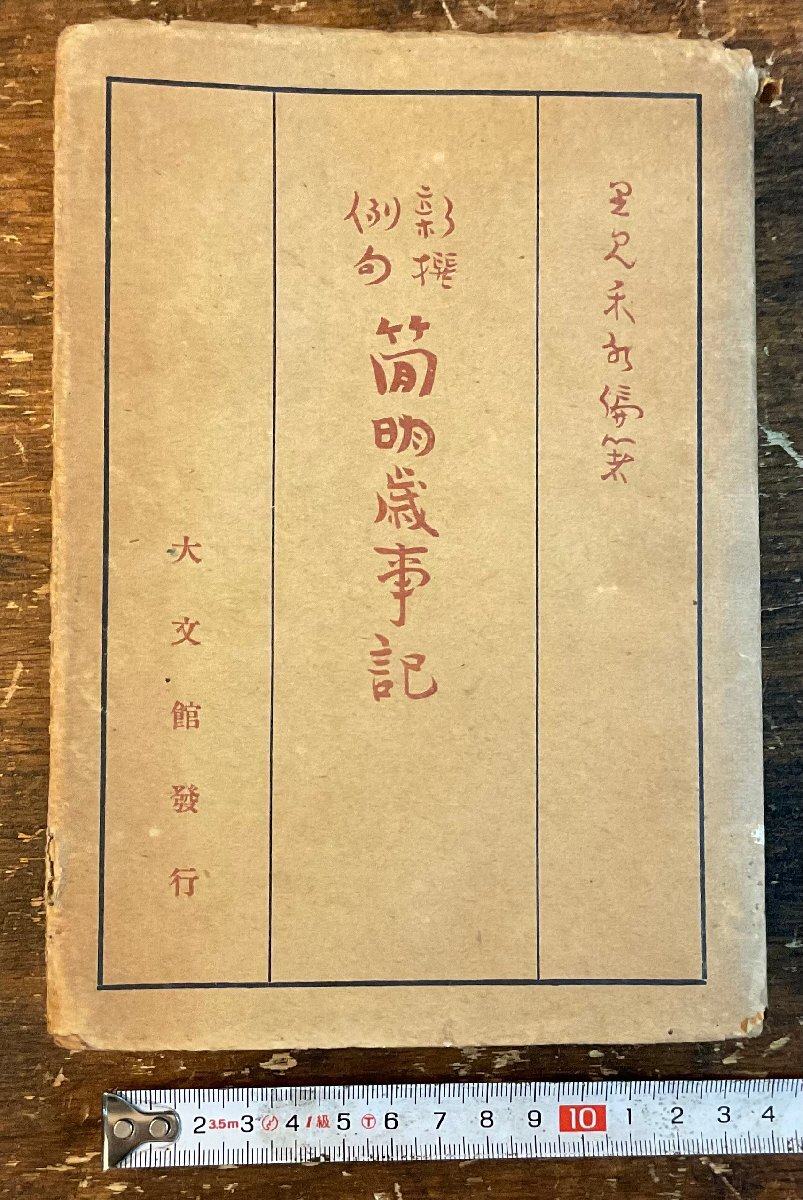 里見禾水編著
新撰
例句
簡明歳事記
大文館發行
2 3.5m 3 4 1級 5 6 7 8 9 10 1 2 3 4